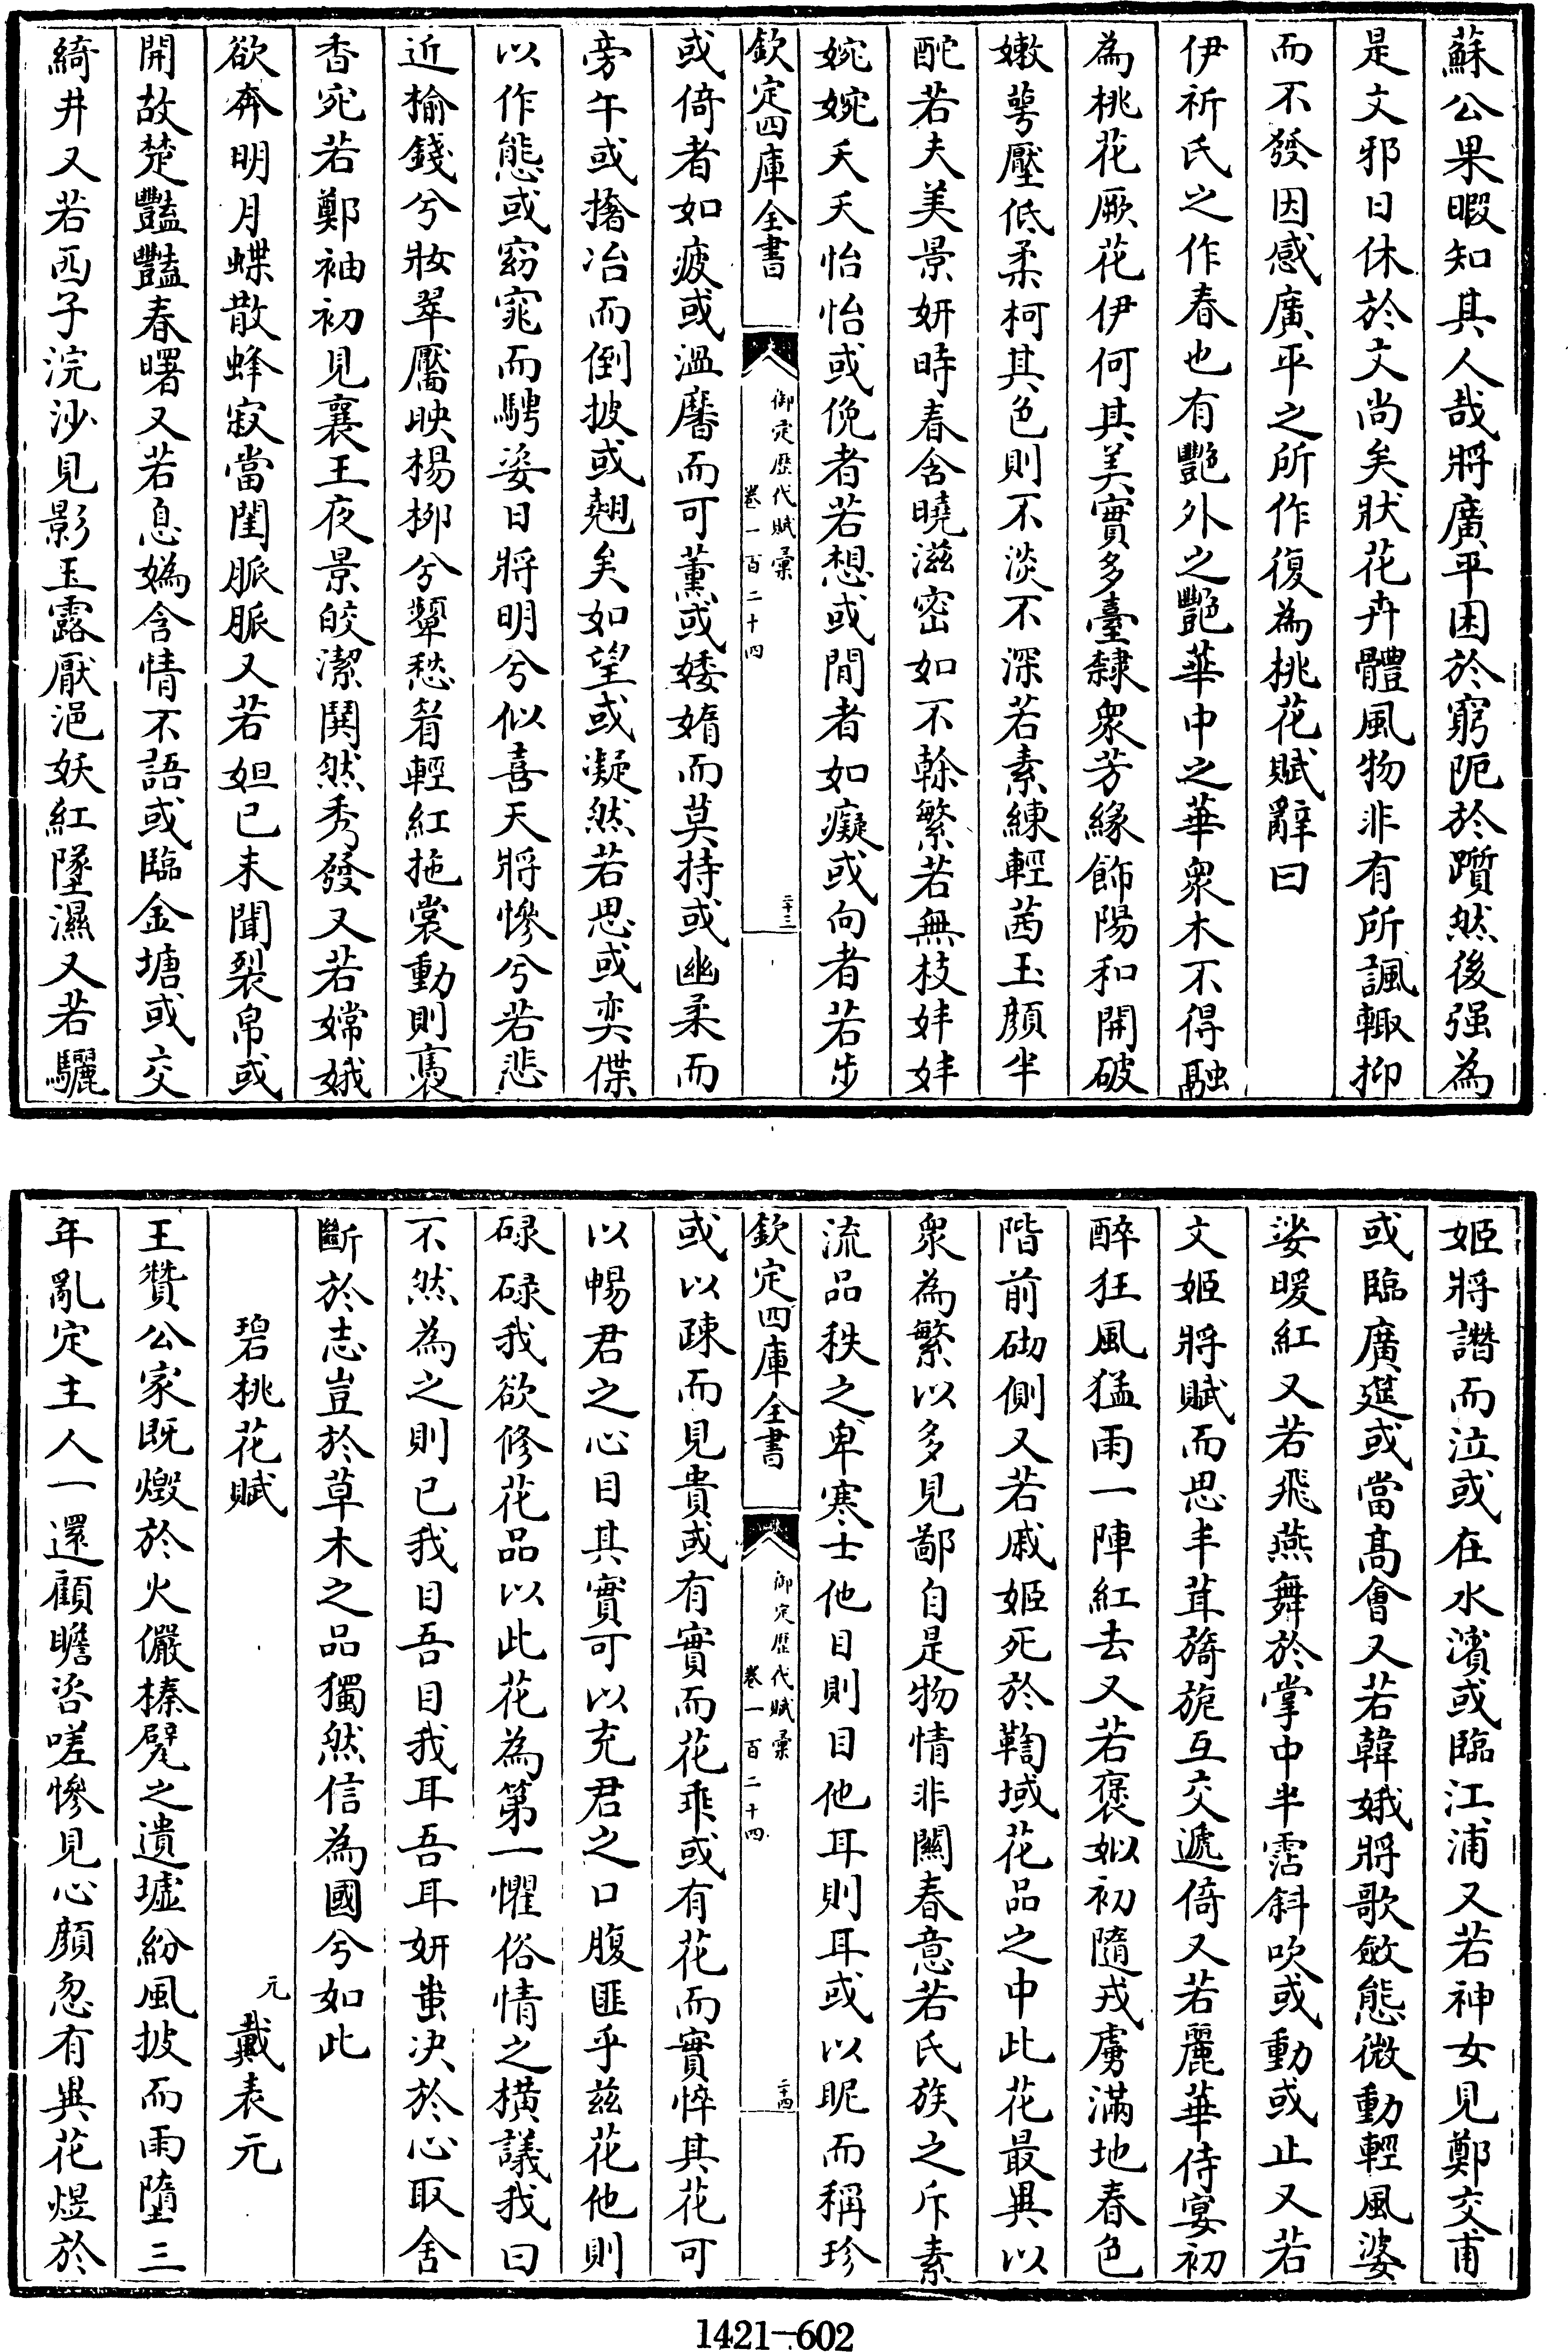 蘇公果暇知其人哉將廣平困於窮阨於躓然後强為
是文邪日休於文尚矣狀花卉體風物非有所諷輙抑
而不發因感廣平之所作復為桃花賦辭曰
伊祈氏之作春也有艷外之艷華中之華衆木不得融
為桃花厥花伊何其美實多臺隸衆芳緣飾陽和開破
嫩萼壓低柔柯其色則不淡不深若素練輕茜玉顔半
酡若夫美景妍時春含曉滋密如不榦繁若無枝妦妦
婉婉夭夭怡怡或俛者若想或閒者如癡或向者若步
欽定四庫全書
御定歷代賦彙
卷一百二十四
二十三
或倚者如疲或溫黁而可薰或婑媠而莫持或幽柔而
旁午或撦冶而倒披或翹矣如望或凝然若思或奕偞
以作態或窈窕而騁姿日將明兮似喜天將慘兮若悲
近榆錢兮妝翠靨映楊柳兮顰愁眉輕紅拖裳動則裛
香宛若鄭袖初見襄王夜景皎潔閧然秀發又若嫦娥
欲奔明月蝶散蜂寂當閨脈脈又若妲已未聞裂帛或
開故楚豔豔春曙又若息媯含情不語或臨金塘或交
綺井又若西子浣沙見影玉露厭浥妖紅墜濕又若驪
姬將譖而泣或在水濱或臨江浦又若神女見鄭交甫
或臨廣筵或當髙會又若韓娥將歌斂態微動輕風婆
娑暖紅又若飛燕舞於掌中半霑斜吹或動或止又若
文姬將賦而思丰茸旖旎互交遞倚又若麗華侍宴初
醉狂風猛雨一陣紅去又若褒姒初隨戎虜滿地春色
階前砌側又若戚姬死於鞫域花品之中此花最異以
衆為繁以多見鄙自是物情非關春意若氏族之斥素
流品秩之卑寒士他目則目他耳則耳或以昵而稱珍
欽定四庫全書
御定歷代賦彙
卷一百二十四
二十四
或以疎而見貴或有實而花乖或有花而實悴其花可
以暢君之心目其實可以充君之口腹匪乎兹花他則
碌碌我欲修花品以此花為第一懼俗情之横議我曰
不然為之則已我目吾目我耳吾耳妍蚩决於心取舍
斷於志豈於草木之品獨然信為國兮如此
碧桃花賦
元
戴表元
王贊公家既燬於火儼榛甓之遺墟紛風披而雨墮三
年亂定主人一還顧瞻咨嗟慘見心顔忽有異花煜於
1421—602